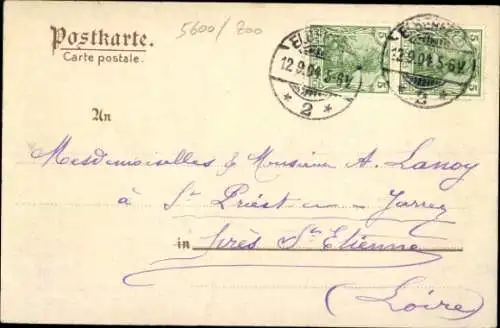 5600/200
Postkarte.
Carte postale.
5
5
12.9.04.5-6N
* 2 *
12.9.04.5-6N
* 2 *
An
Mesdemoiselles & Monsieur A. Lanoy
à St Priest en Jarrez
in près St Etienne
(Loire)